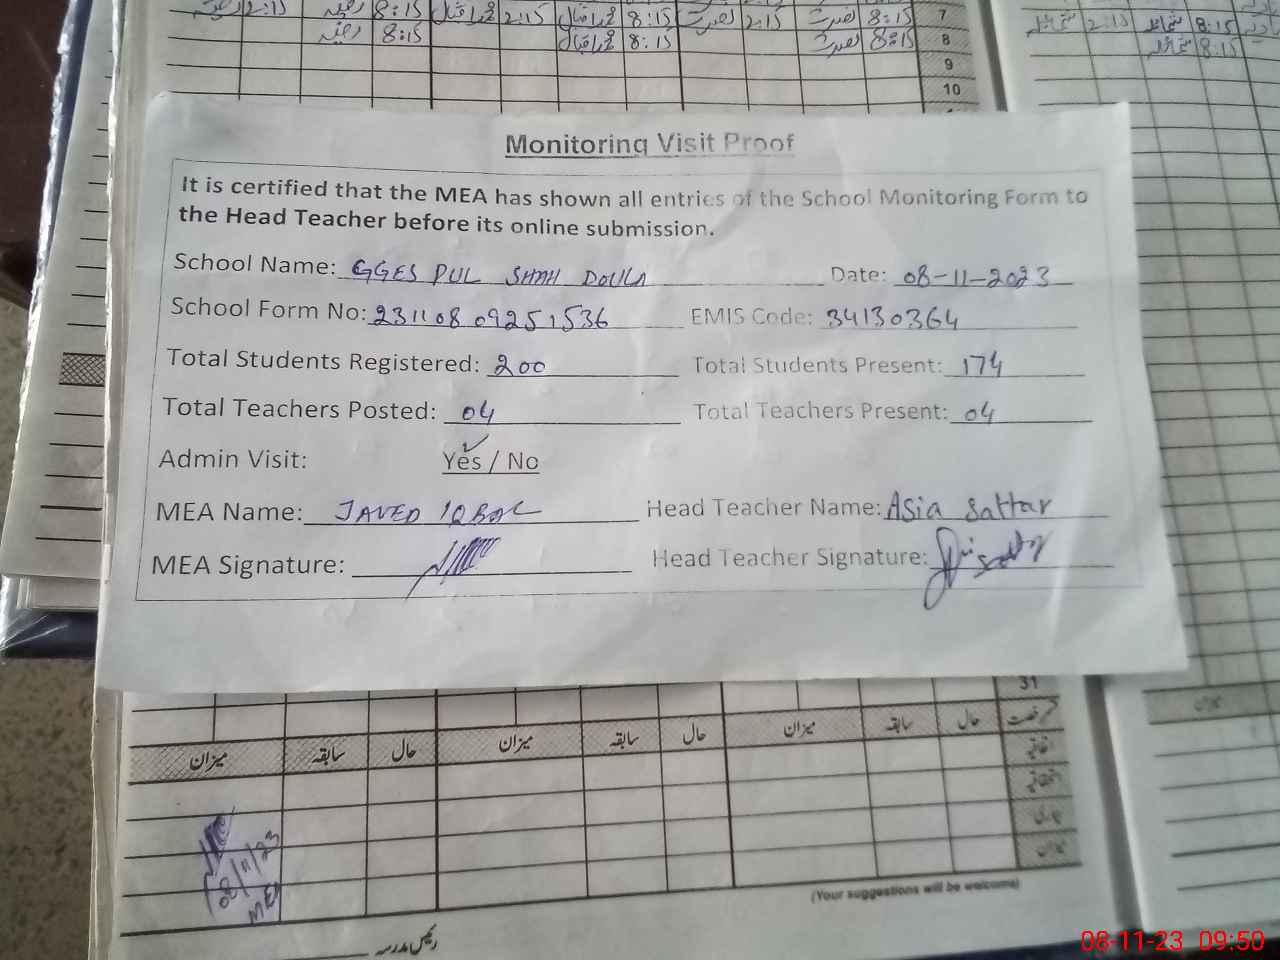 2:15 8:15 2:15 محمد اقبال 8:15 نصرت 2:15 نصرت 8:15 7
8:15 محمد اقبال 8:15 نصرت 8:15 8
9
10
2:15 8:15
8:15
Monitoring Visit Proof
It is certified that the MEA has shown all entries of the School Monitoring Form to
the Head Teacher before its online submission.
School Name: GGES PUL SHAH DOULA Date: 08-11-2023
School Form No: 231108 09251536 EMIS Code: 34130364
Total Students Registered: 200 Total Students Present: 174
Total Teachers Posted: 04 Total Teachers Present: 04
Admin Visit: Yes / No
MEA Name: JAVED IQBAL Head Teacher Name: Asia Sattar
MEA Signature: Head Teacher Signature:
31
میزان سابقہ حال میزان سابقہ حال میزان سابقہ حال
اتفاقیہ
08/11/23
MEA
(Your suggestions will be welcome)
رئیس مدرسہ
08-11-23 09:50